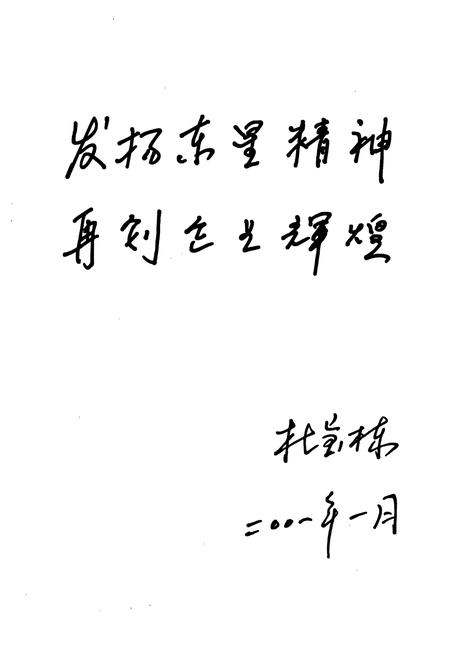 发扬东星精神
再创企业辉煌
杜宝栋
二〇〇一年一月